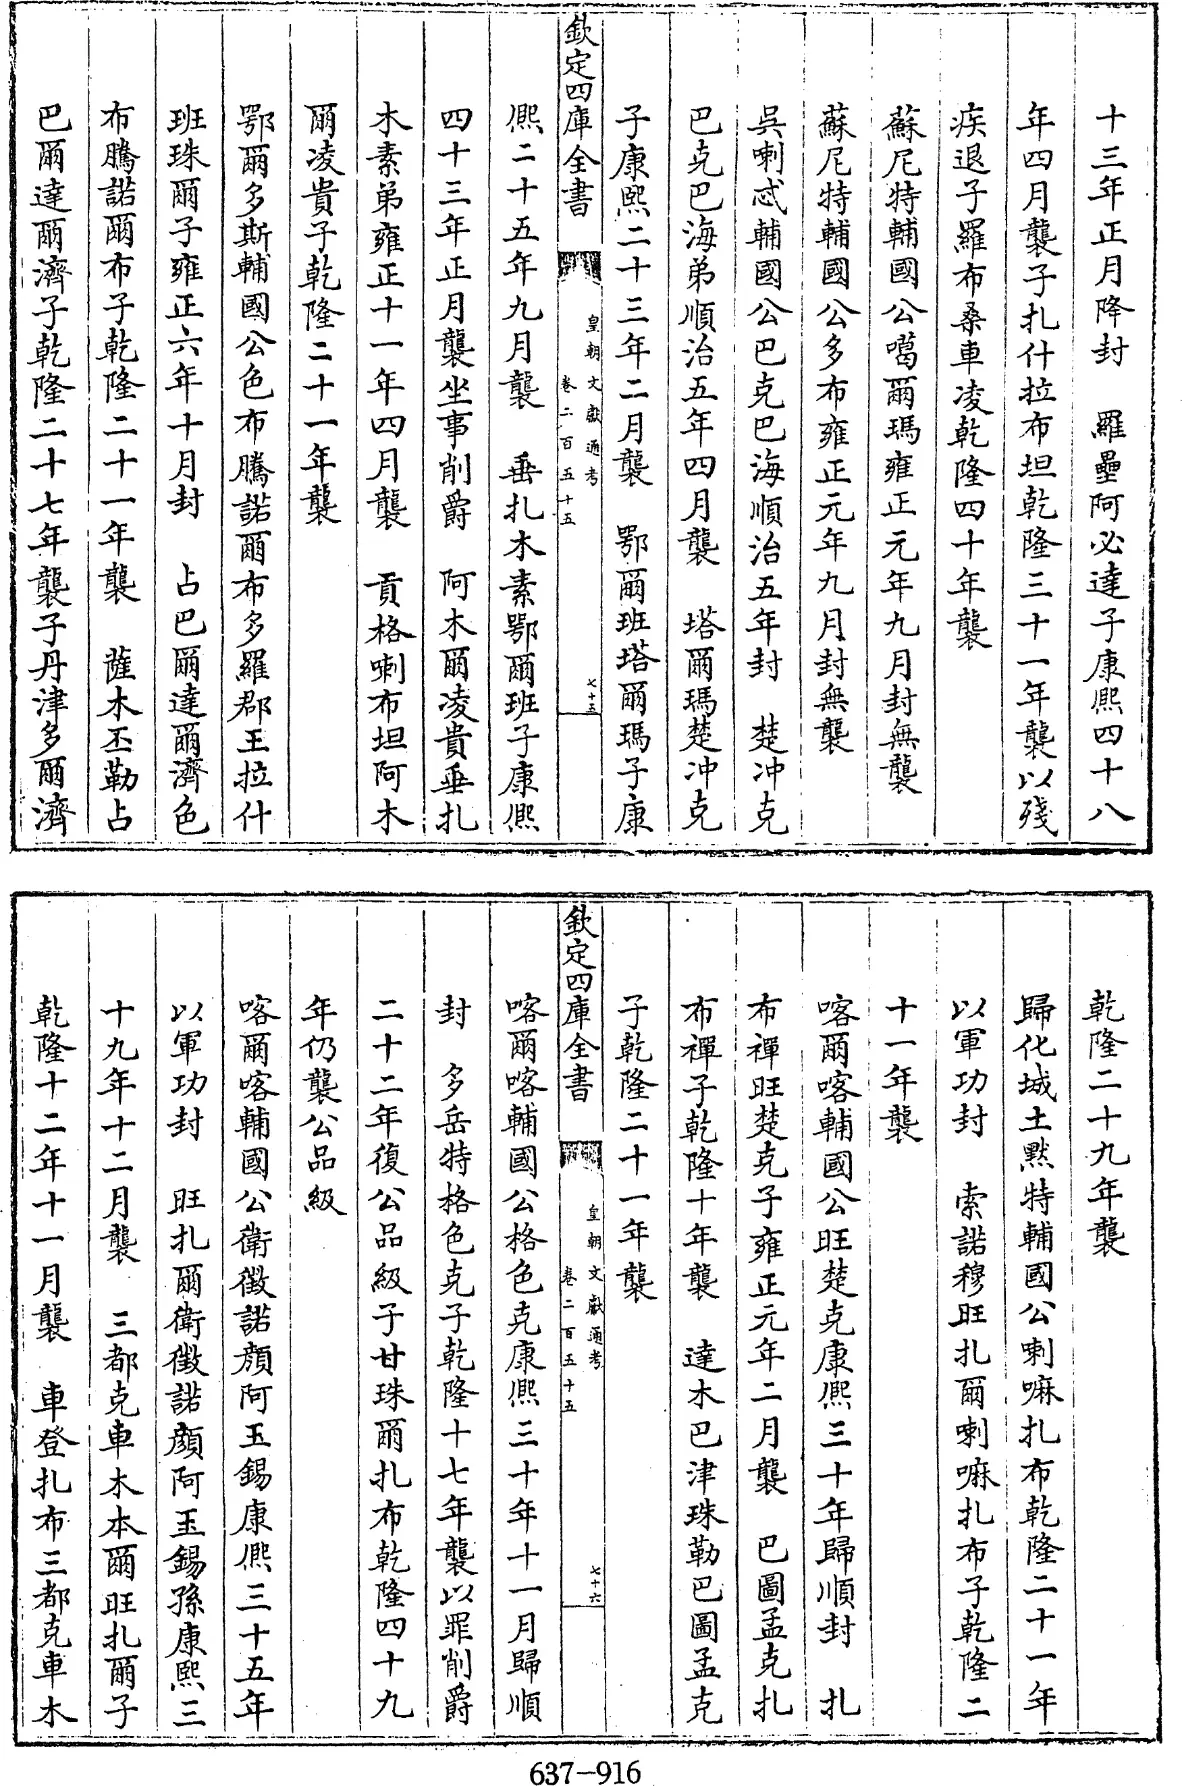 十三年正月降封　羅壘阿必達子康熙四十八
年四月襲子扎什拉布坦乾隆三十一年襲以殘
疾退子羅布桑車凌乾隆四十年襲
蘇尼特輔國公噶爾瑪雍正元年九月封無襲
蘇尼特輔國公多布雍正元年九月封無襲
呉喇忒輔國公巴克巴海順治五年封　楚冲克
巴克巴海弟順治五年四月襲　塔爾瑪楚冲克
子康熙二十三年二月襲　鄂爾班塔爾瑪子康
欽定四庫全書
皇朝文獻通考
卷二百五十五
七十五
熙二十五年九月襲　垂扎木素鄂爾班子康熙
四十三年正月襲坐事削爵　阿木爾凌貴垂扎
木素弟雍正十一年四月襲　貢格喇布坦阿木
爾凌貴子乾隆二十一年襲
鄂爾多斯輔國公色布騰諾爾布多羅郡王拉什
班珠爾子雍正六年十月封　占巴爾達爾濟色
布騰諾爾布子乾隆二十一年襲　薩木丕勒占
巴爾達爾濟子乾隆二十七年襲子丹津多爾濟
乾隆二十九年襲
歸化城土默特輔國公喇嘛扎布乾隆二十一年
以軍功封　索諾穆旺扎爾喇嘛扎布子乾隆二
十一年襲
喀爾喀輔國公旺楚克康熙三十年歸順封　扎
布禪旺楚克子雍正元年二月襲　巴圖孟克扎
布禪子乾隆十年襲　達木巴津珠勒巴圖孟克
子乾隆二十一年襲
欽定四庫全書
皇朝文獻通考
卷二百五十五
七十六
喀爾喀輔國公格色克康熙三十年十一月歸順
封　多岳特格色克子乾隆十七年襲以罪削爵
二十二年復公品級子甘珠爾扎布乾隆四十九
年仍襲公品級
喀爾喀輔國公衛徵諾顏阿玉錫康熙三十五年
以軍功封　旺扎爾衛徵諾顏阿玉錫孫康熙三
十九年十二月襲　三都克車木本爾旺扎爾子
乾隆十二年十一月襲　車登扎布三都克車木
637-916